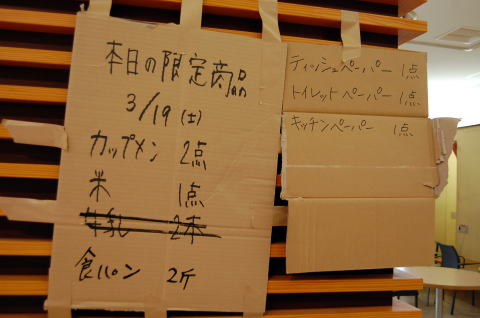 本日の限定商品
3/19(土)
カップメン 2点
米 1点
牛乳 2本
食パン 2斤
ティッシュペーパー 1点
トイレットペーパー 1点
キッチンペーパー 1点